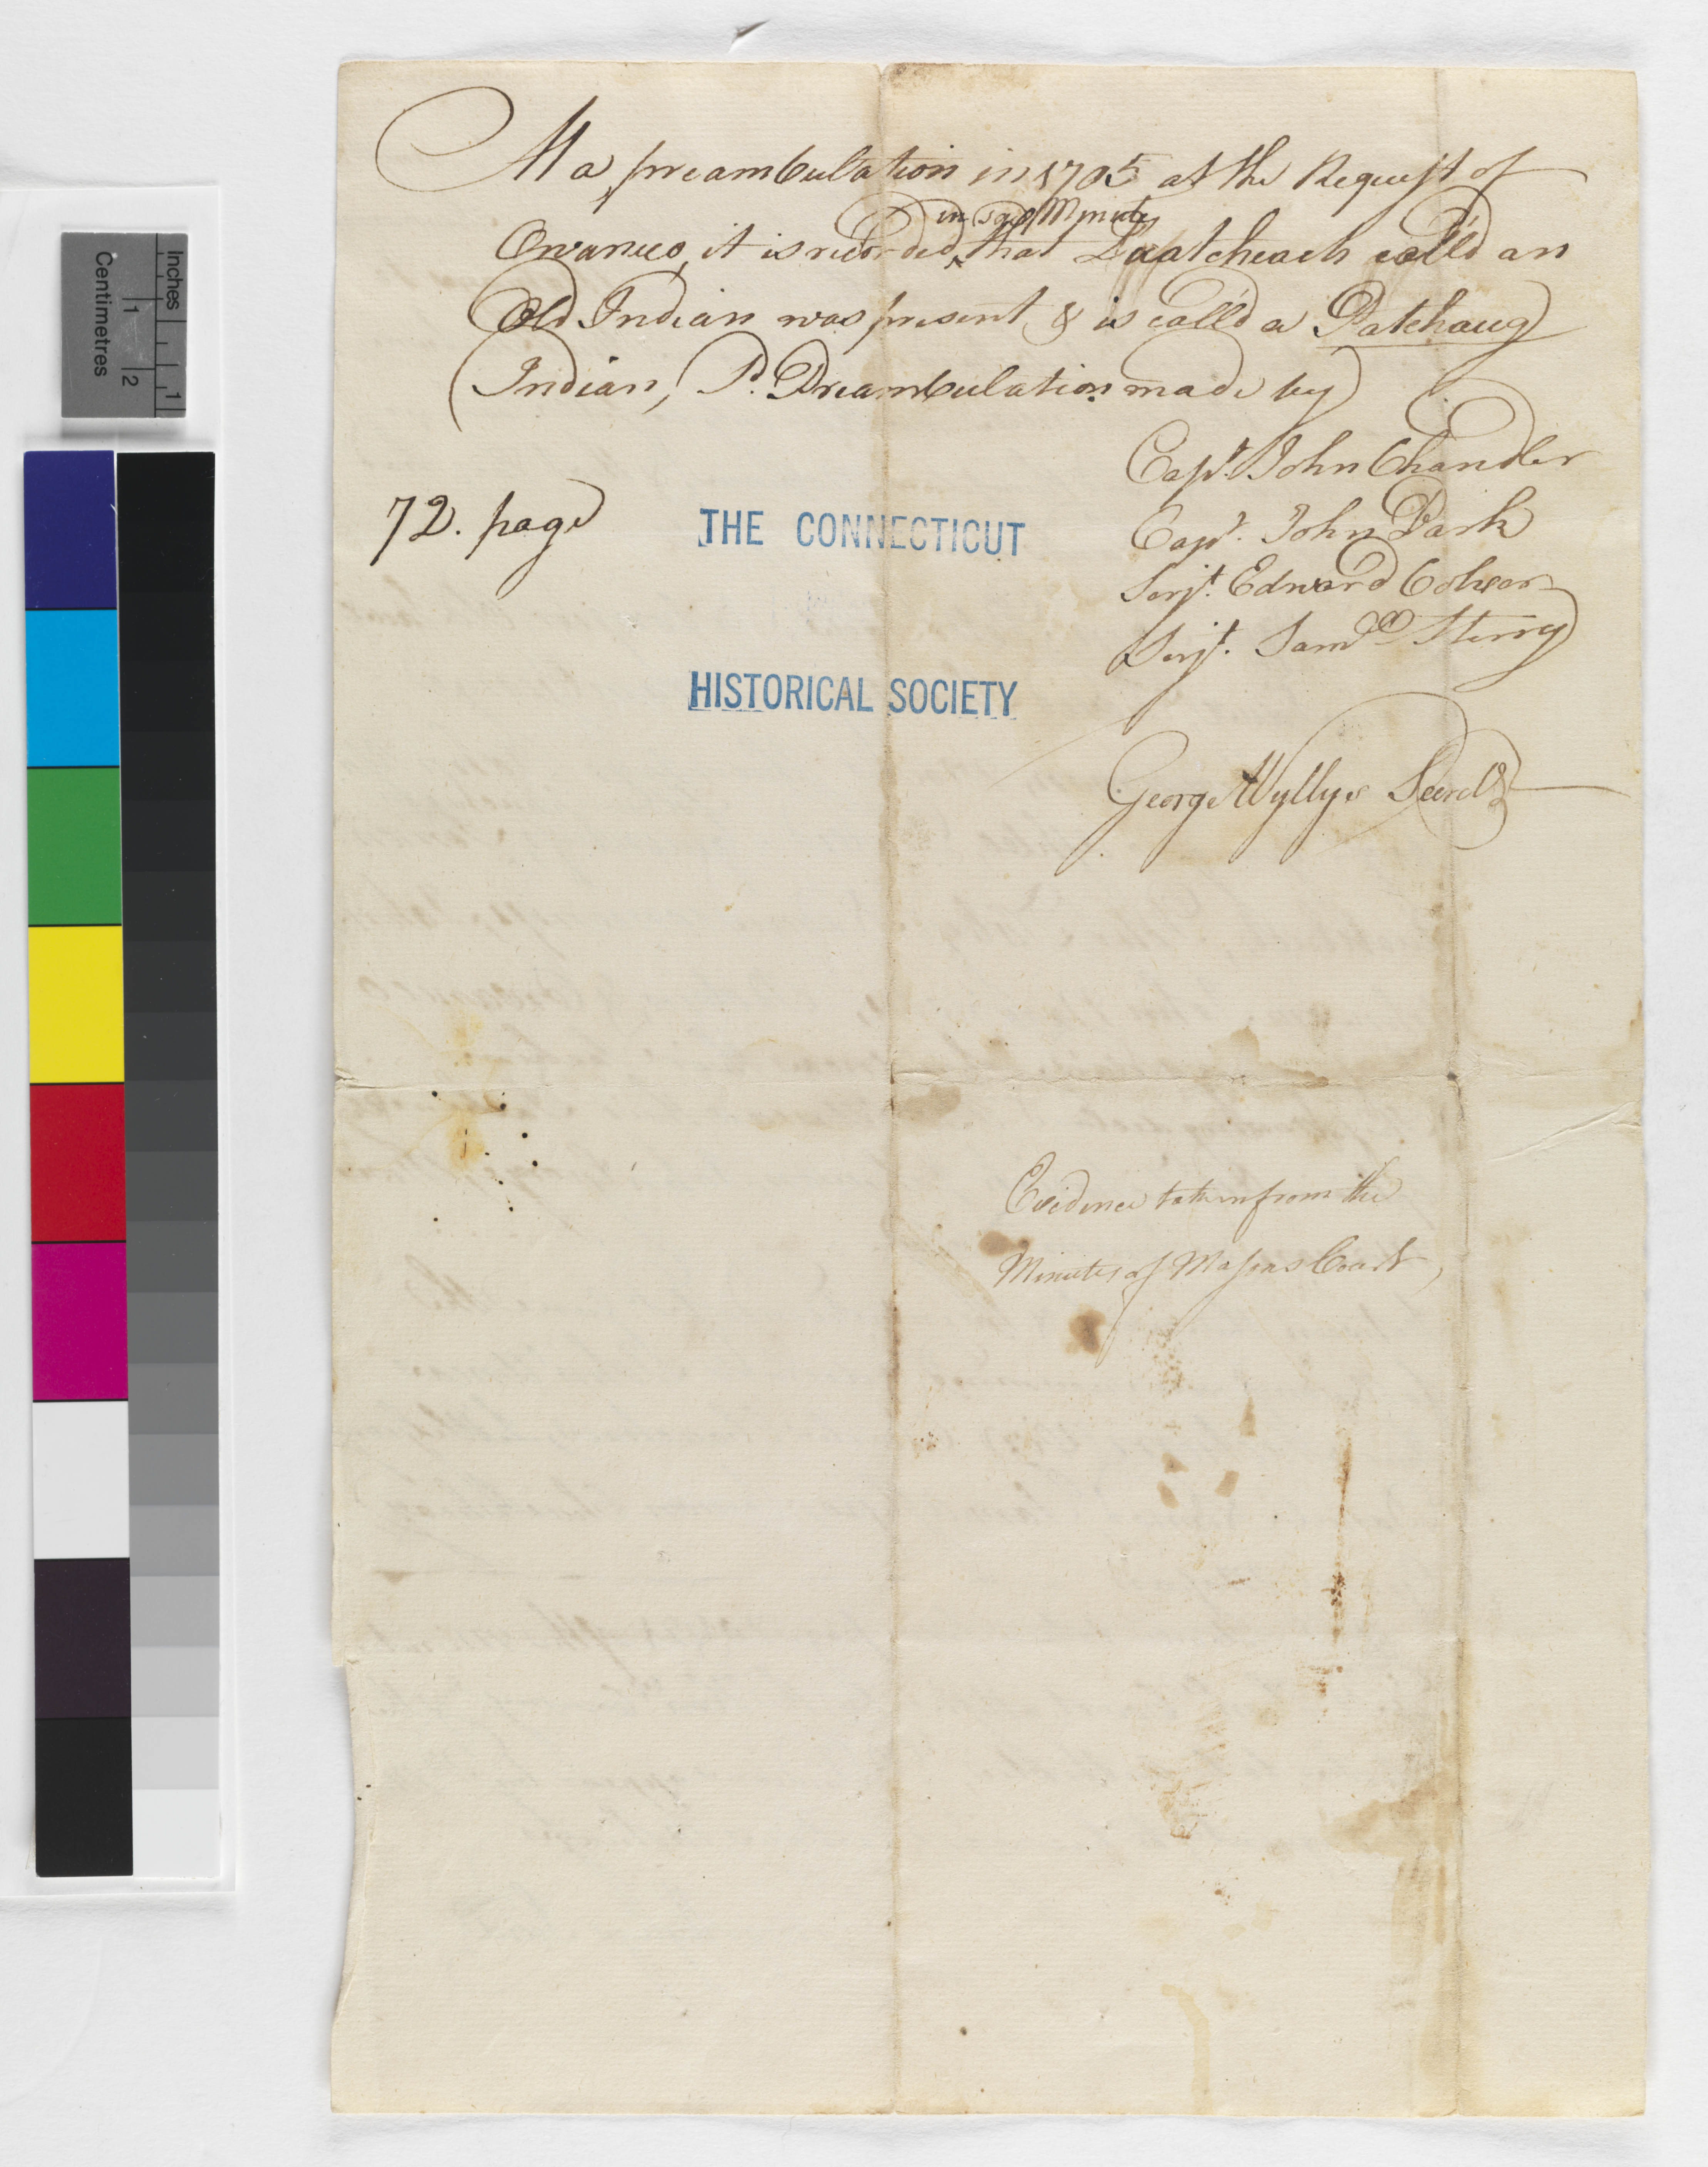 At a preambulation in 1705 at the Request of
in said Minutes
Owaneco, it is recorded ^ that Laatcheach call'd an
Old Indian was present & is call'd a Patchaug
Indian, Sd. Preambulation made by
Capt. John Chandler
72. page
Capt. John Park
Serjt. Edward Colver
Serjt. Samll Sterry
THE CONNECTICUT
HISTORICAL SOCIETY
George Wyllys Secrety
Evidence taken from the
Minutes of Masons Court,
Inches
Centimetres
1
2
1